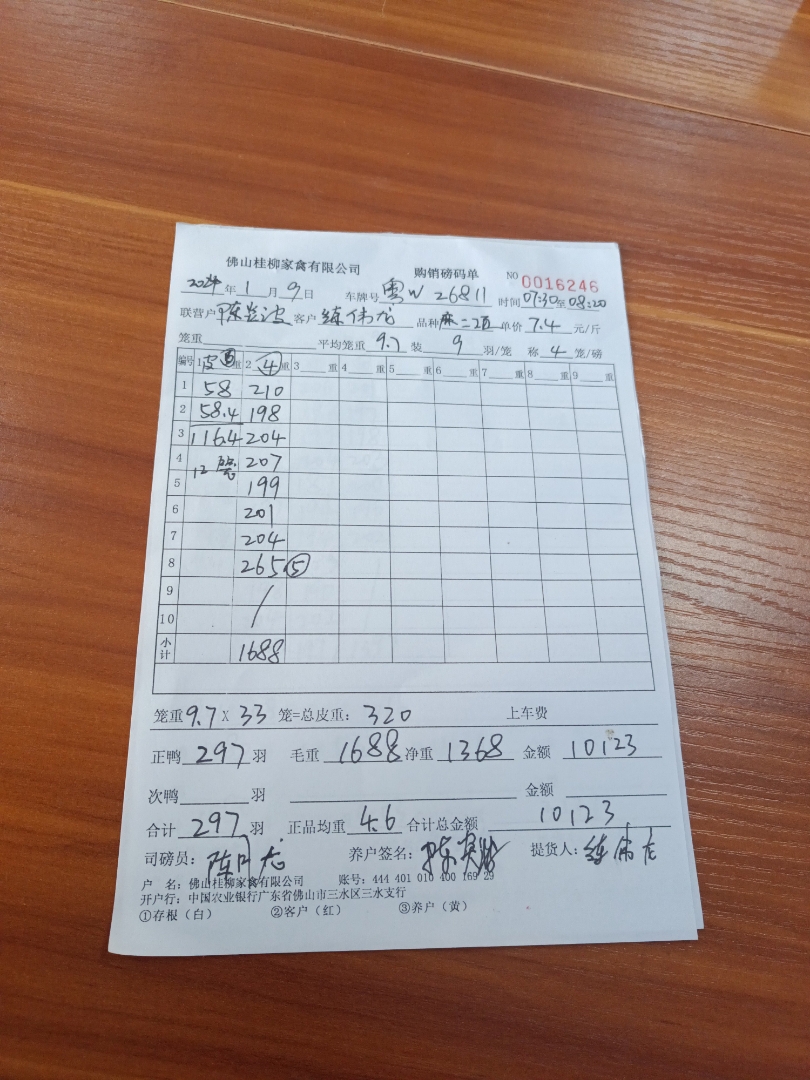 佛山桂柳家禽有限公司 购销磅码单 NO 0016246
2024年1月9日 车牌号 粤W 26811 时间 07:30至08:20
联营户 陈 波 客户 练伟龙 品种 麻二 单价 7.4 元/斤
笼重 平均笼重 9.7 装 9 羽/笼 称 4 笼/磅
编号 1 皮 重 2 ④ 重 3 重 4 重 5 重 6 重 7 重 8 重 9 重
1 58 210
2 58.4 198
3 116.4 204
4 12 207
5 199
6 201
7 204
8 265 ⑤
9 /
10 /
小计 1688
笼重 9.7 X 33 笼=总皮重: 320 上车费
正鸭 297 羽 毛重 1688 净重 1368 金额 10123
次鸭 羽 金额
合计 297 羽 正品均重 4.6 合计总金额 10123
司磅员: 陈 龙 养户签名: 陈 提货人: 练伟龙
户 名: 佛山桂柳家禽有限公司 账号: 444 401 010 400 169 29
开户行: 中国农业银行广东省佛山市三水区三水支行
①存根（白） ②客户（红） ③养户（黄）